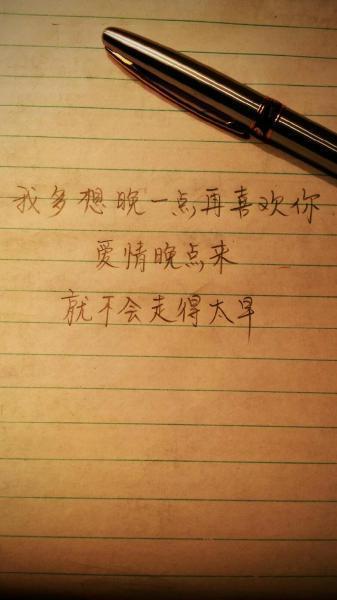 我多想晚一点再喜欢你
爱情晚点来
就不会走得太早